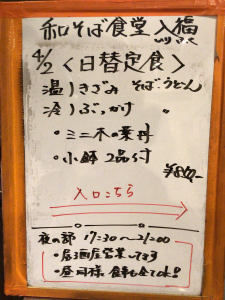 和そば食堂 入福
4/2 〈日替定食〉
温) きざみ そば うどん
冷) ぶっかけ 〃
・ミニ木の葉丼
・小鉢 2品付
¥800-
入口こちら
夜の部 17:30〜21:00
・居酒屋営業してます
・昼同様 食事も全てok!!